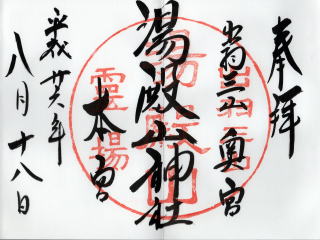 奉拝
出羽三山奥宮
湯殿山神社
本宮
平成廿六年
八月十八日
出羽三山
湯殿山
霊場